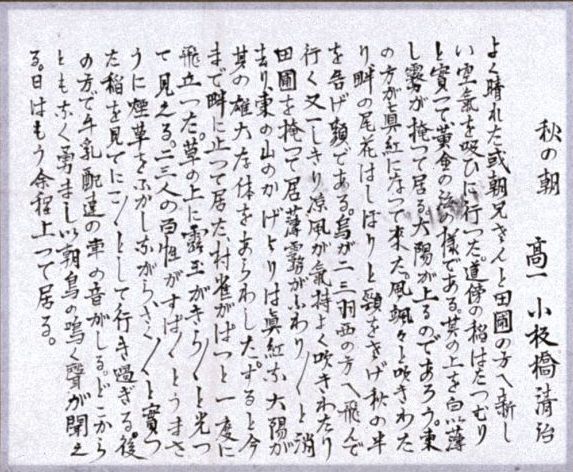 秋の朝
高一 小板橋清治
よく晴れた或朝兄さんと田圃の方へ新し
い空氣を吸ひに行つた。道傍の稲はたつぷり
と實つて黄金の波の様である。其の上を白い薄
し霧が掩つて居る太陽が上るのであらう。東
の方が真紅になつて来た。風颯々と吹きわた
り畔の尾花はしぼりと頸をさげ秋の半
を告げ顔である。烏が二三羽西の方へ飛んで
行く又一しきり凉風が氣持よく吹きわたり
田圃を掩つて居薄霧がふわり／＼と消
去り、東の山のかげよりは真紅な太陽が
其の雄大な体をあらわした。すると今
まで畔に止つて居た、村雀がぱつと一度に
飛立つた。草の上に露玉がきら／＼と光つ
て見える。二三人の百性がすぱ／＼とうまさ
うに煙草をふかしながらさく／＼と實つ
た稲を見てにこ／＼として行き過ぎる。後
の方で牛乳配達の車の音がしる。どこから
ともなく勇ましい朝鳥の鳴く聲が聞え
る。日はもう余程上つて居る。